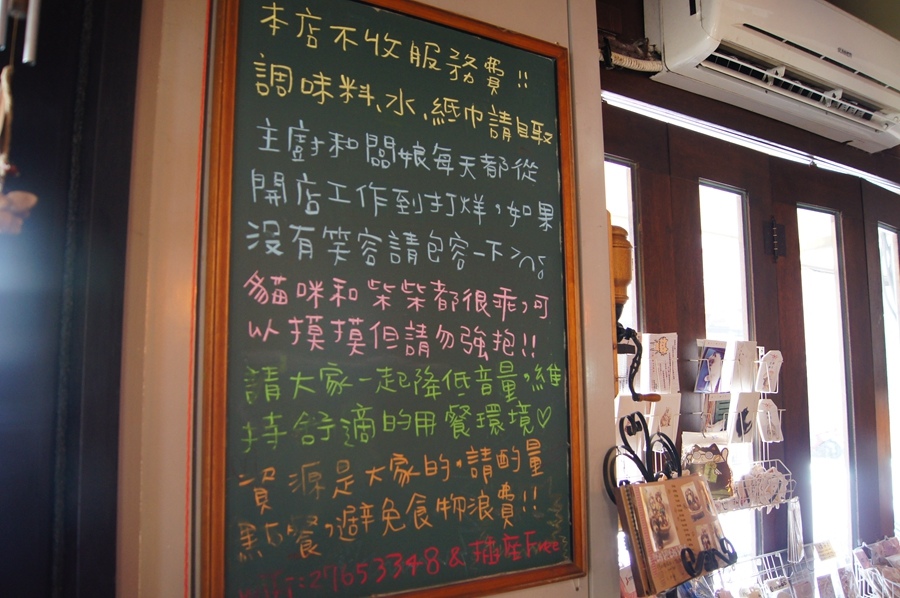 本店不收服務費!!
調味料、水、紙巾請自取
主廚和闆娘每天都從
開店工作到打烊,如果
沒有笑容請包容一下>"<。
貓咪和柴柴都很乖,可
以摸摸但請勿強抱!!
請大家一起降低音量,維
持舒適的用餐環境♡
資源是大家的,請酌量
點餐,避免食物浪費!!
27653348 & 插座Free